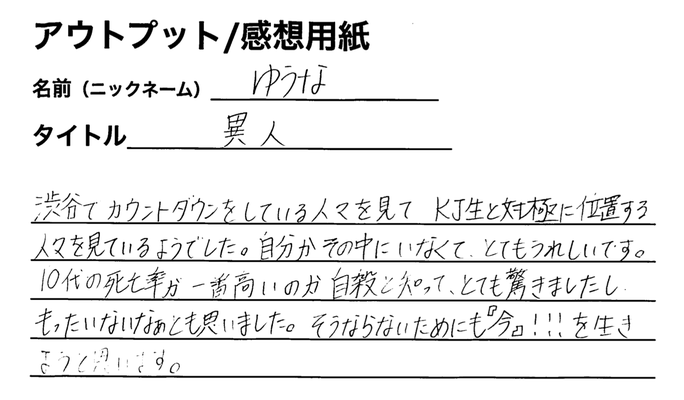 アウトプット/感想用紙
名前（ニックネーム） ゆうな
タイトル 異人
渋谷でカウントダウンをしている人々を見て KJ生と対極に位置する
人々を見ているようでした。自分がその中にいなくて、とてもうれしいです。
10代の死亡率が一番高いのが自殺と知って、とても驚きましたし
もったいないなぁとも思いました。そうならないためにも『今』!!!を生き
ようと思います。